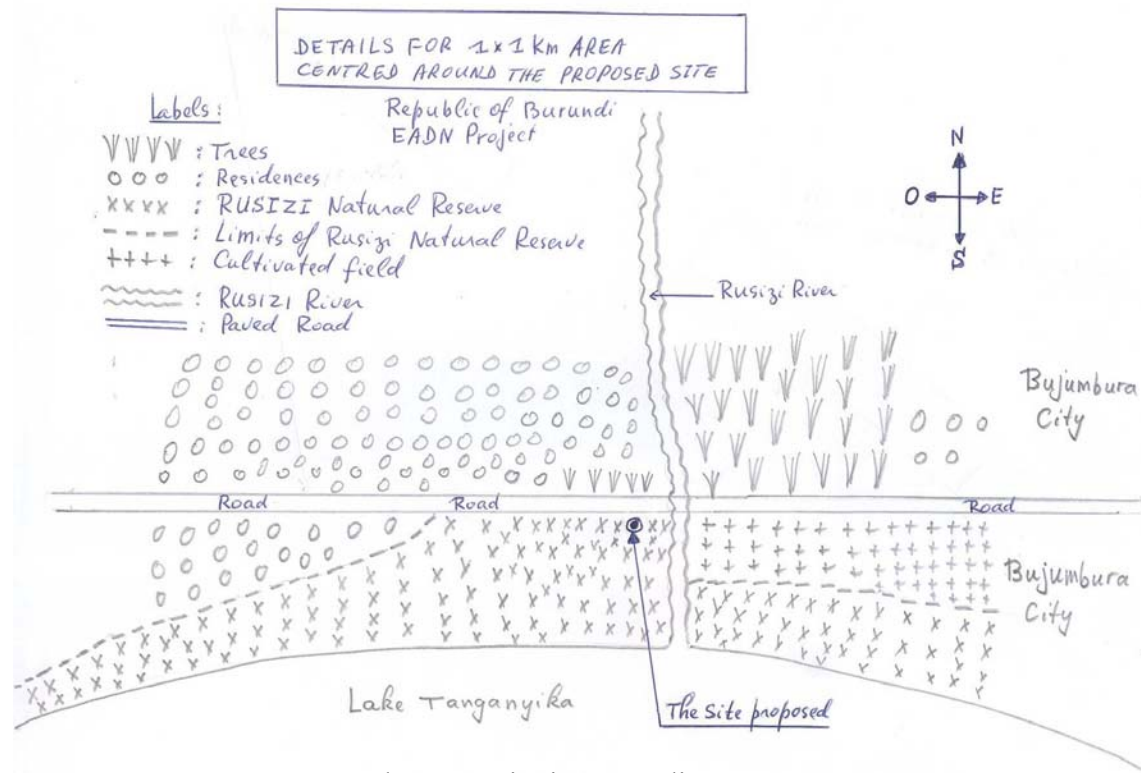 DETAILS FOR 1x1 Km AREA
CENTRED AROUND THE PROPOSED SITE
Republic of Burundi
EADN Project
Labels:
: Trees
: Residences
: RUSIZI Natural Reserve
: Limits of Rusizi Natural Reserve
: Cultivated field
: RUSIZI River
: Paved Road
N
O E
S
Rusizi River
Bujumbura
City
Road Road Road
Bujumbura
City
Lake Tanganyika
The Site proposed